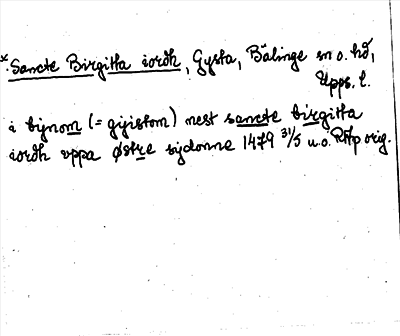 *Sancte Birgitta iordh, Gysta, Bälinge sn o. hd,
Upps. l.
i býnom (= gýistom) nest sancte birgitta
iordh vppa østre sýdonne 1479 31/5 u.o. RAp orig.